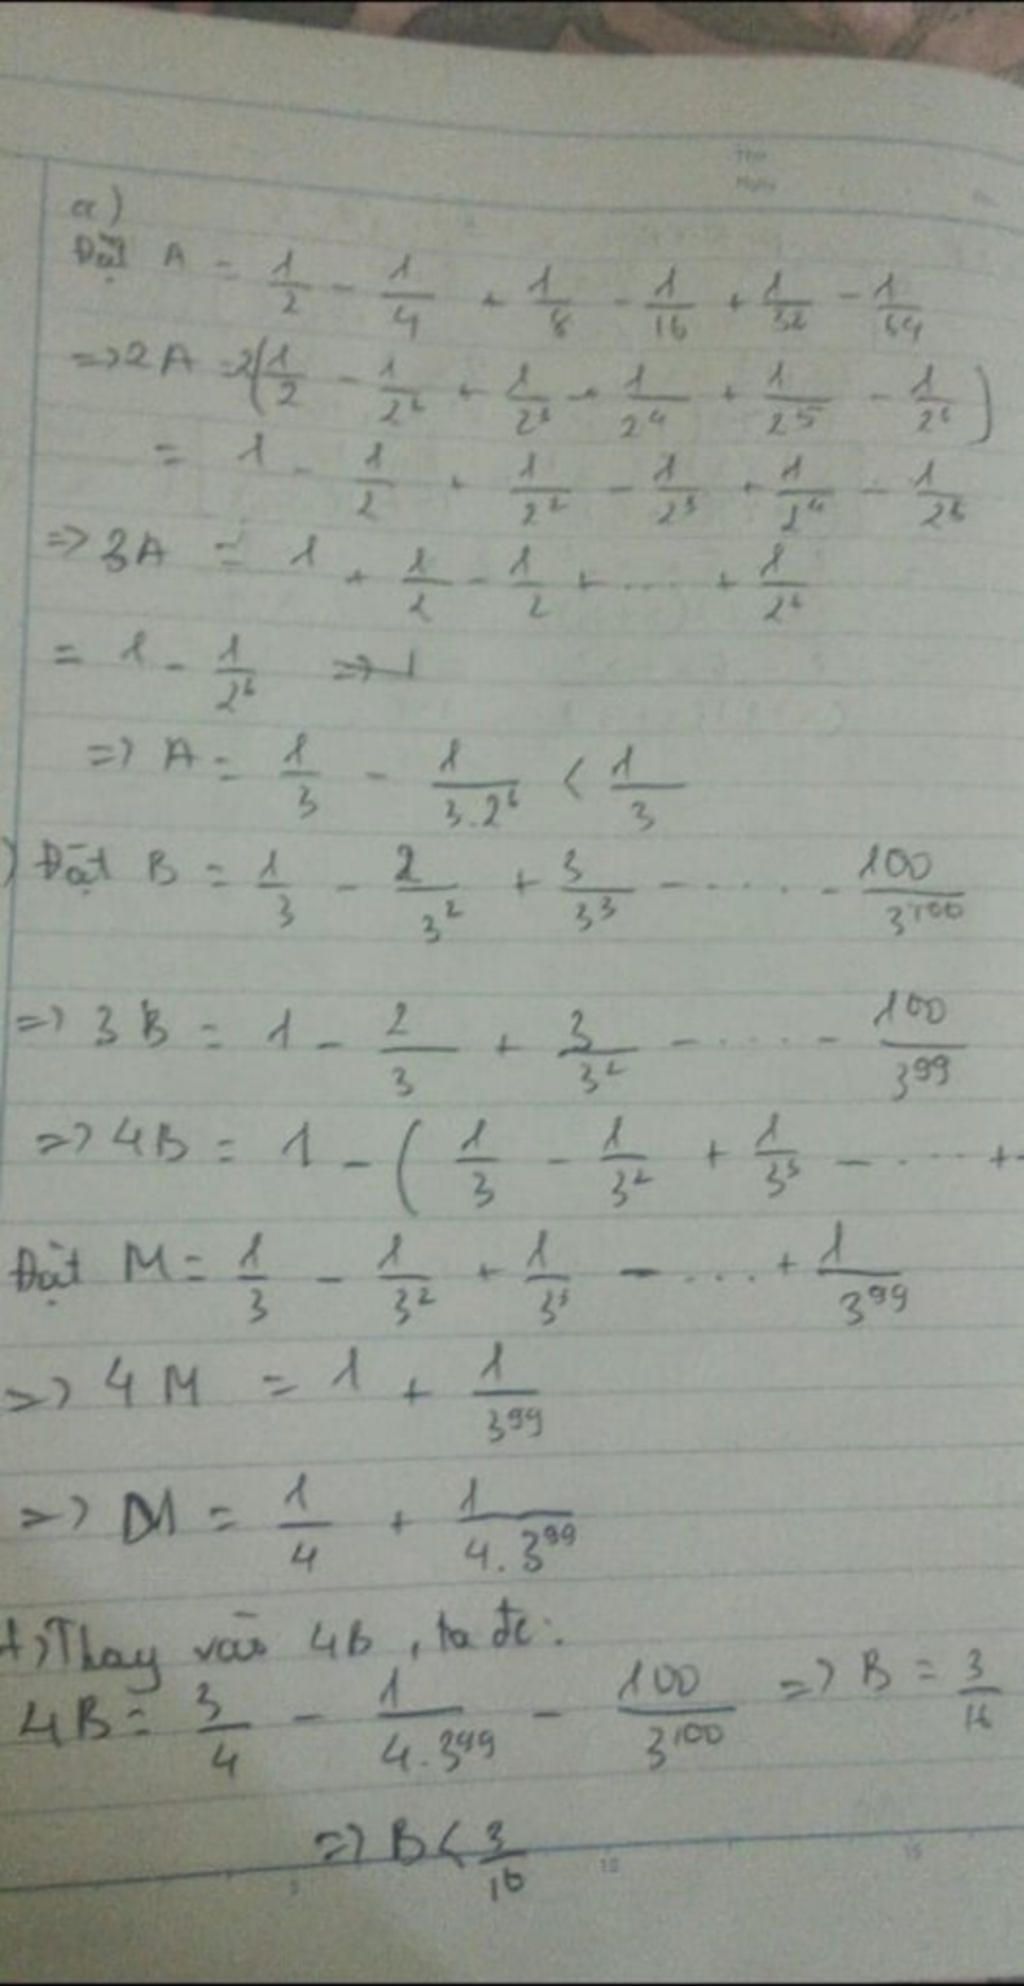 a)
Đặt A = 1/2 - 1/4 + 1/8 - 1/16 + 1/32 - 1/64
=> 2A = 2(1/2 - 1/2² + 1/2³ - 1/2⁴ + 1/2⁵ - 1/2⁶)
= 1 - 1/2 + 1/2² - 1/2³ + 1/2⁴ - 1/2⁵
=> 3A = 1 + 1/2 - 1/2 + .... + 1/2⁶
= 1 - 1/2⁶
=> A = 1/3 - 1/3.2⁶ < 1/3
) Đặt B = 1/3 - 2/3² + 3/3³ - ..... - 100/3¹⁰⁰
=> 3B = 1 - 2/3 + 3/3² - ..... - 100/3⁹⁹
=> 4B = 1 - (1/3 - 1/3² + 1/3³ - .... +
Đặt M = 1/3 - 1/3² + 1/3³ - .... + 1/3⁹⁹
=> 4M = 1 + 1/3⁹⁹
=> M = 1/4 + 1/4.3⁹⁹
+) Thay vào 4B, ta đc:
4B = 3/4 - 1/4.3⁹⁹ - 100/3¹⁰⁰ => B = 3/16
=> B < 3/16